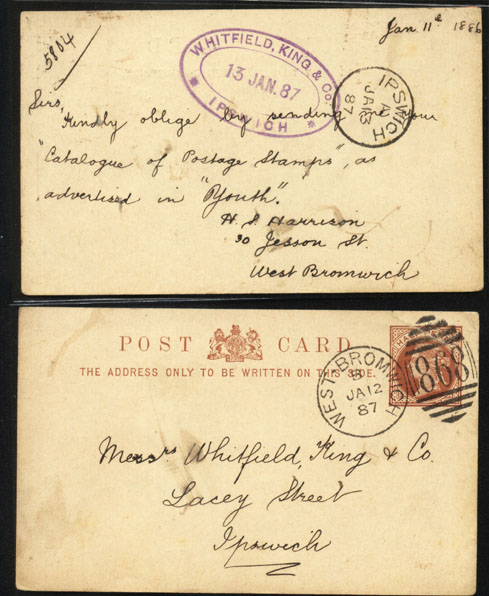 5804
Jan. 11th 1886
WHITFIELD, KING & Co.
13 JAN. 87
IPSWICH
IPSWICH
A
JA 13
87
Sirs,
Kindly oblige by sending me your
"Catalogue of Postage Stamps", as
advertised in "Youth".
H. S. Harrison
30 Jesson St.
West Bromwich
POST CARD
THE ADDRESS ONLY TO BE WRITTEN ON THIS SIDE.
WEST-BROMWICH
B
JA 12
87
868
Messrs Whitfield, King & Co.
Lacey Street
Ipswich